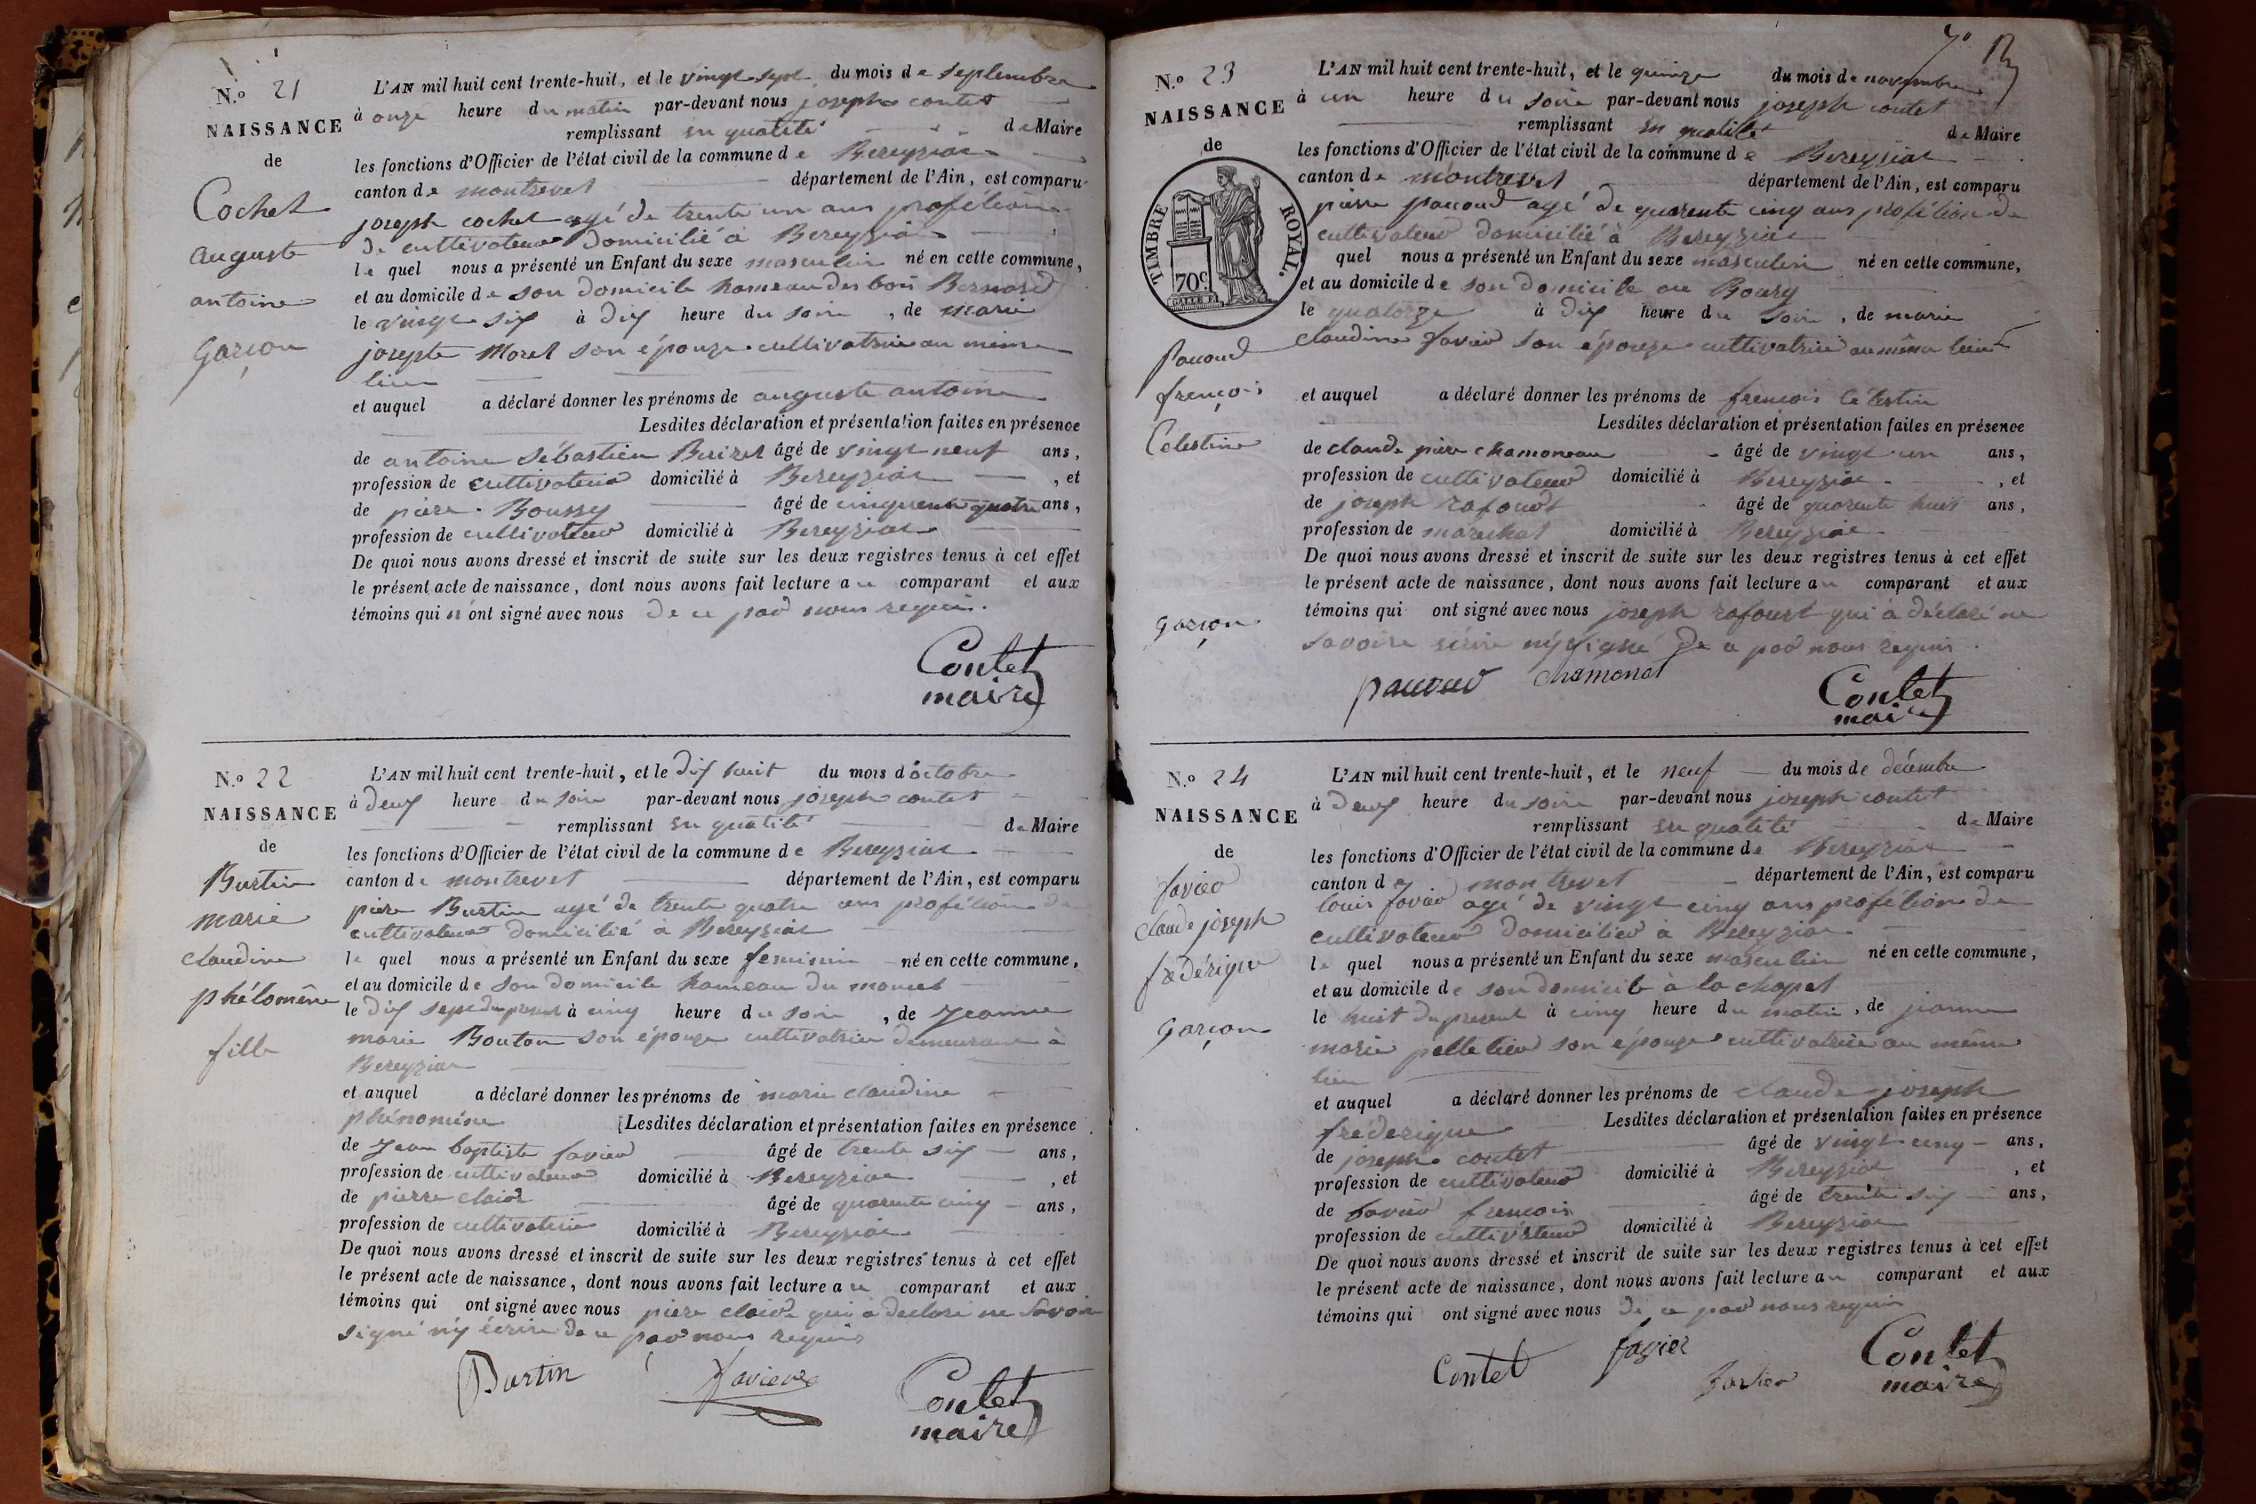 N.o 21
NAISSANCE
de
Cochet
auguste
antoine
Garçon
L'AN mil huit cent trente-huit, et le vingt sept du mois de septembre
à onze heure du matin par-devant nous joseph contet
remplissant en qualité de Maire
les fonctions d'Officier de l'état civil de la commune de Bereyziat
canton de montrevet département de l'Ain, est comparu
joseph cochet agé de trente un ans profétion
de cultivateur domicilié à Bereyziat
le quel nous a présenté un Enfant du sexe masculin né en cette commune,
et au domicile de son domicile hameau des bois Bernard
le vingt six à dix heure du soire, de marie
josepte Morel son épouze cultivatrice au même
lieu
et auquel a déclaré donner les prénoms de auguste antoine
Lesdites déclaration et présentation faites en présence
de antoine Sébastien Buiret âgé de vingt neuf ans,
profession de cultivateur domicilié à Bereyziat, et
de piere Boussy âgé de cinquente quatre ans,
profession de cultivateur domicilié à Bereyziat
De quoi nous avons dressé et inscrit de suite sur les deux registres tenus à cet effet
le présent acte de naissance, dont nous avons fait lecture au comparant et aux
témoins qui n'ont signé avec nous de ce par nous requis.
Contet
maire
N.o 22
NAISSANCE
de
Burtin
marie
claudine
phélomène
fille
L'AN mil huit cent trente-huit, et le dix huit du mois d'octobre
à deux heure du soire par-devant nous joseph contet
remplissant en qualité de Maire
les fonctions d'Officier de l'état civil de la commune de Bereyziat
canton de montrevet département de l'Ain, est comparu
piere Burtin agé de trente quatre ans profétion de
cultivateur domicilié à Bereyziat
le quel nous a présenté un Enfant du sexe feminin né en cette commune,
et au domicile de son domicile hameau du
le dix sept du présent à cinq heure du soire, de Jeanne
marie Bouton son épouze cultivatrice demeurant à
Bereyziat
et auquel a déclaré donner les prénoms de marie claudine
phénomène Lesdites déclaration et présentation faites en présence
de Jean baptiste favier âgé de trente six ans,
profession de cultivateur domicilié à Bereyziat, et
de pierre clair âgé de quarente cinq ans,
profession de cultivateur domicilié à Bereyziat
De quoi nous avons dressé et inscrit de suite sur les deux registres tenus à cet effet
le présent acte de naissance, dont nous avons fait lecture au comparant et aux
témoins qui ont signé avec nous piere clair qui a déclaré ne savoir
signé n'y écrire de ce par nous requis
Burtin
Contet
maire
N.o 23
NAISSANCE
de
TIMBRE ROYAL.
70c.
Paucoud
françois
Celestine
garçon
L'AN mil huit cent trente-huit, et le quinze du mois de novembre
à un heure du soire par-devant nous joseph contet
remplissant en qualité de Maire
les fonctions d'Officier de l'état civil de la commune de Bereyziat
canton de montrevet département de l'Ain, est comparu
pierre paucoud agé de quarente cinq ans profétion de
cultivateur domicilié à Bereyziat
quel nous a présenté un Enfant du sexe masculin né en cette commune,
et au domicile de son domicile au Bourg
le quatorze à dix heure du soire, de marie
claudine favier son épouze cultivatrice au même lieu
et auquel a déclaré donner les prénoms de françois Célestin
Lesdites déclaration et présentation faites en présence
de claude piere chamonau âgé de vingt un ans,
profession de cultivateur domicilié à Bereyziat, et
de joseph rafourt âgé de quarente huit ans,
profession de marechal domicilié à Bereyziat
De quoi nous avons dressé et inscrit de suite sur les deux registres tenus à cet effet
le présent acte de naissance, dont nous avons fait lecture au comparant et aux
témoins qui ont signé avec nous joseph rafourt qui à déclaré ne
savoire écrire n'y signé De ce par nous requis
paucoud
chamonat
Contet
maire
N.o 24
NAISSANCE
de
favier
claude joseph
fredérique
Garçon
L'AN mil huit cent trente-huit, et le neuf du mois de décembre
à deux heure du soire par-devant nous joseph contet
remplissant en qualité de Maire
les fonctions d'Officier de l'état civil de la commune de Bereyziat
canton de montrevet département de l'Ain, est comparu
louis favier agé de vingt cinq ans profétion de
cultivateur domicilier à Bereyziat
le quel nous a présenté un Enfant du sexe masculin né en cette commune,
et au domicile de son domicile à la chapel
le huit du present à cinq heure du matin, de jeanne
marie pelletier son épouze cultivatrice au même
lieu
et auquel a déclaré donner les prénoms de claude joseph
fréderique Lesdites déclaration et présentation faites en présence
de joseph contet âgé de vingt cinq ans,
profession de cultivateur domicilié à Bereyziat, et
de favier francois âgé de trente six ans,
profession de cultivateur domicilié à Bereyziat
De quoi nous avons dressé et inscrit de suite sur les deux registres tenus à cet effet
le présent acte de naissance, dont nous avons fait lecture au comparant et aux
témoins qui ont signé avec nous de ce par nous requis
Contet
favier
favier
Contet
maire